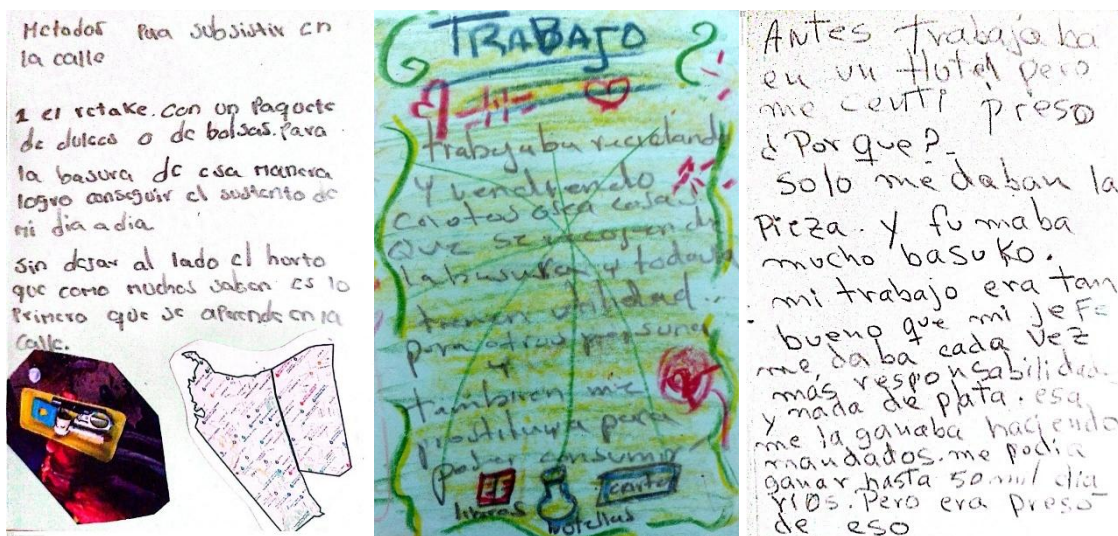 Metodos Para subsistir en
la calle
1 el retake. con un Paquete
de dulces o de bolsas. Para
la basura de esa manera
logro conseguir el sustento de
mi dia a dia
Sin dejar al lado el hurto
que como muchos saben es lo
Primero que se aprende en la
calle.
TRABAJO
trabajaba reciclando
y vendiendo
cosas
Que se recojen de
la basura y todavia
tienen utilidad
para otras personas
y
tambien me
prostituya para
poder consumir
libros
botellas
carton
Antes trabajaba
en un Hotel pero
me centi preso
¿Por que?
solo me daban la
Pieza. y fumaba
mucho basuko.
mi trabajo era tan
bueno que mi jefe
me daba cada vez
más responsabilidad
y nada de plata. esa
me la ganaba haciendo
mandados. me podia
ganar hasta 50 mil dia
rios. Pero era preso
de eso